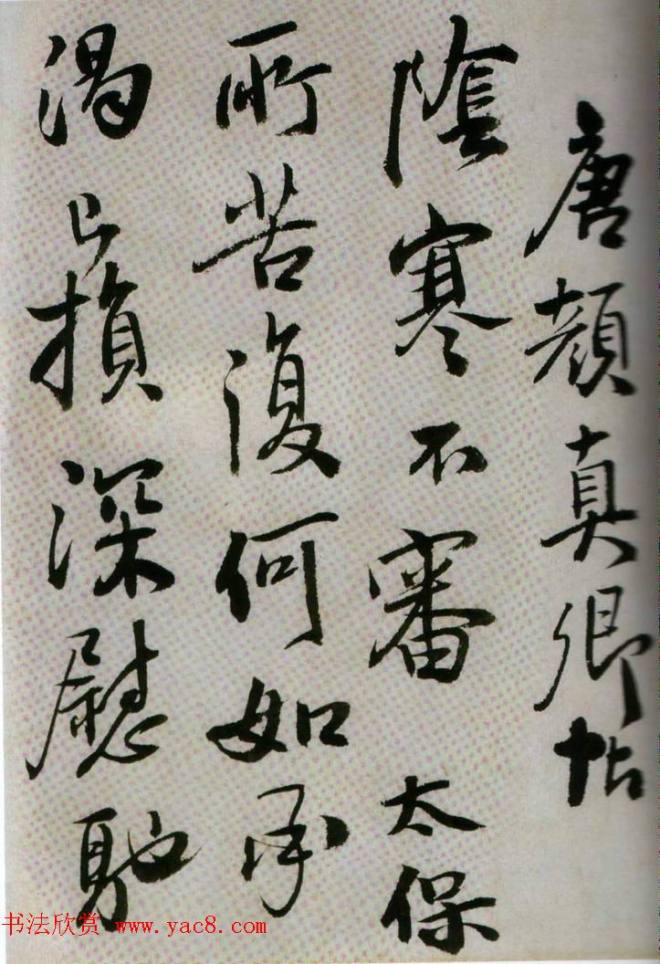 唐顔真卿帖
陰寒不審 太保
所苦復何如承
渴已損深慰馳
书法欣赏 www.yac8.com